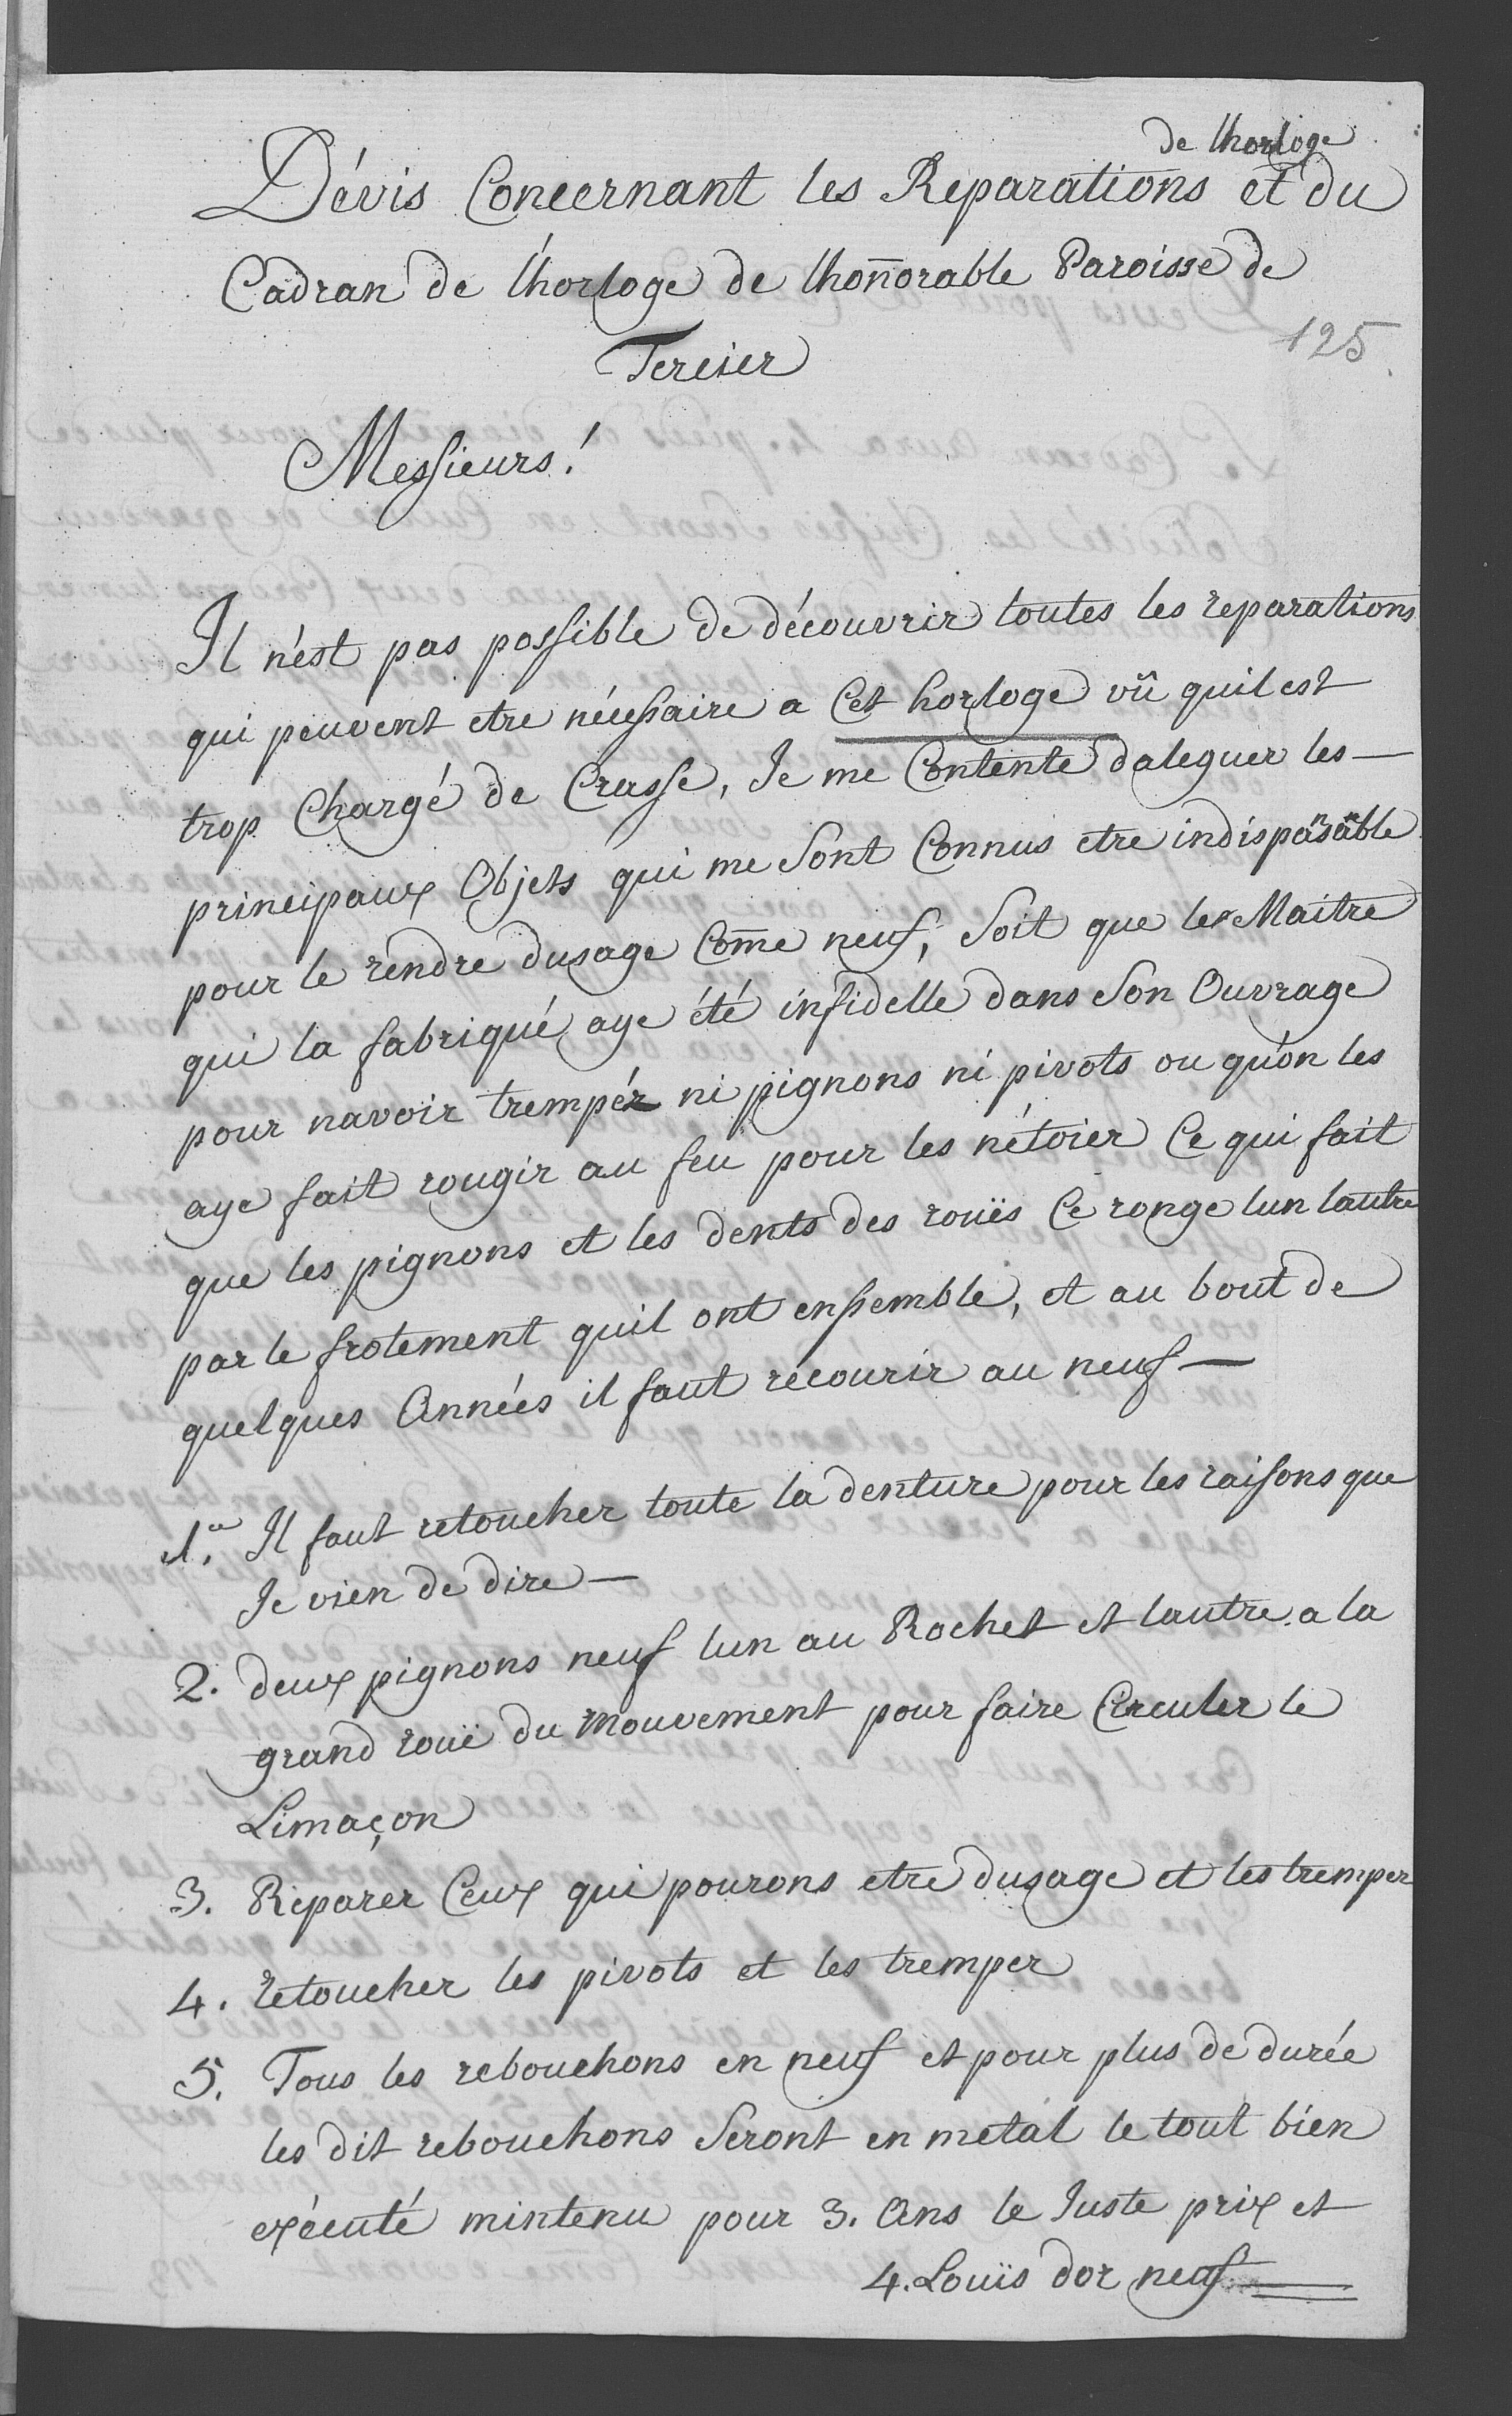 de lhorloge
Dévis Concernant les Réparations et du
Cadran de l'horloge de lhonn̄orable Paroisse de
Tercier
125
Messieurs!
Il n'ést pas possible de découvrir toutes les reparations
qui peuvent etre nécessaire a Cet horloge vû quil est
trop Chargé de Crasse, Je me Contente daleguer les —
principaux Objets qui me Sont Connus etre indispasable
pour le rendre dusage Com̄e neuf, Soit que les Maitre
qui la fabriqué aye été infidelle dans Son Ouvrage
pour navoir trempér ni pignons ni pivots ou qu'on les
aye fait rougir au feu pour les nétoier Ce qui fait
que les pignons et les dents des rouës Ce ronge lun lautre
par le frotement quil ont ensemble, et au bout de
quelques Années il faut récourir au neuf —
1.º Il faut retoucher toute la denture pour les raisons que
Je vien de dire —
2. deux pignons neuf lun au Rochet et lautre a la
grand rouë du mouvement pour faire Circuler le
Limaçon
3. Réparer Ceux qui pourons etre dusage et les tremper
4. retoucher les pivots et les tremper
5. Tous les rebouchons en neuf et pour plus de durée
les dit rebouchons Seront en metal le tout bien
exécuté mintenu pour 3. Ans le Juste prix et
4. Louïs dor neuf